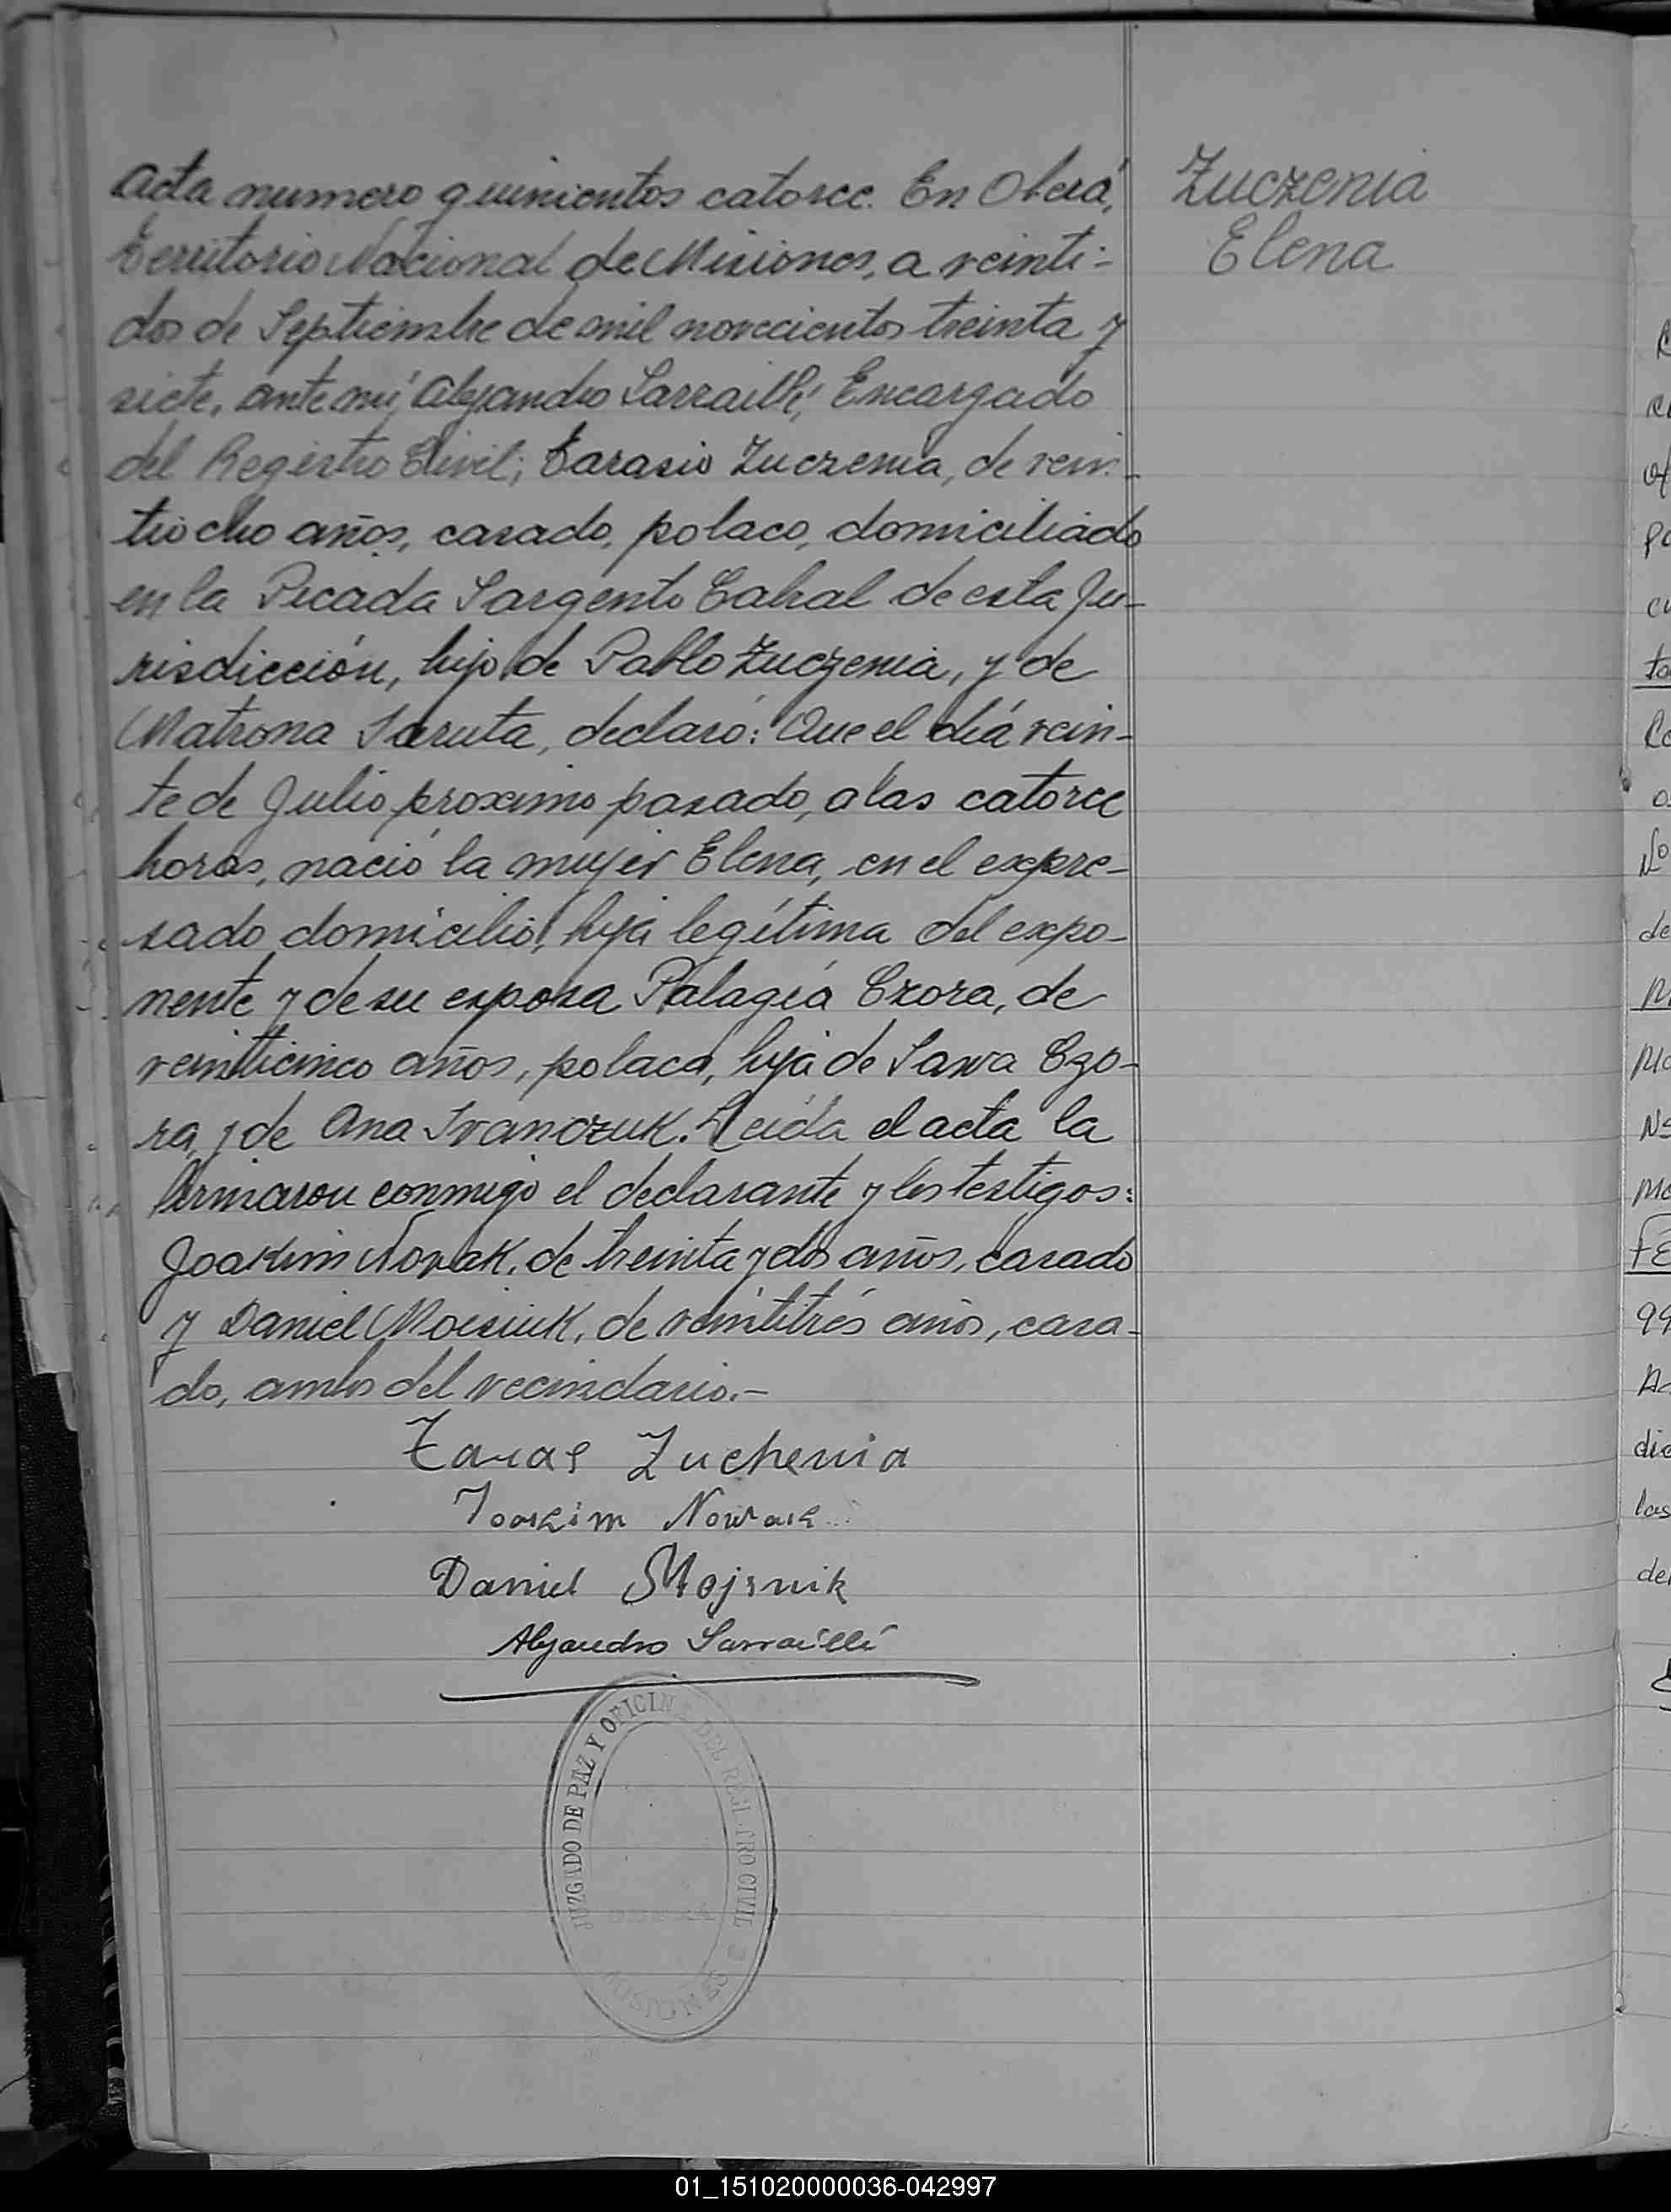 Acta numero quinientos catorce. En Oberá,
Territorio Nacional de Misiones, a veinti-
dos de Septiembre de mil novecientos treinta y
siete, ante mí, Alejandro Sarraillé, Encargado
del Registro Civil; Tarasio Zuczenia, de vein-
tiocho años, casado, polaco, domiciliado
en la Picada Sargento Cabral de esta Ju-
risdicción, hijo de Pablo Zuczenia, y de
Matrona Saruta, declaró: Que el día vein-
te de Julio proximo pasado, a las catorce
horas, nació la mujer Elena, en el expre-
sado domicilio, hija legítima del expo-
nente y de su esposa Palagia Czora, de
veinticinco años, polaca, hija de Sawa Czo-
ra, y de Ana Ivanczuk. Leída el acta la
firmaron conmigo el declarante y los testigos:
Joakim Novak, de treinta y dos años, casado
y Daniel Moisiuk, de veintitrés años, casa-
do, ambos del vecindario.-
Zuczenia
Elena
Taras Zuchenia
Joakim Nowak
Daniel Mojsiuk
Alejandro Sarraillé
JUZGADO DE PAZ Y OFICINA DEL REGISTRO CIVIL
MISIONES
01_151020000036-042997